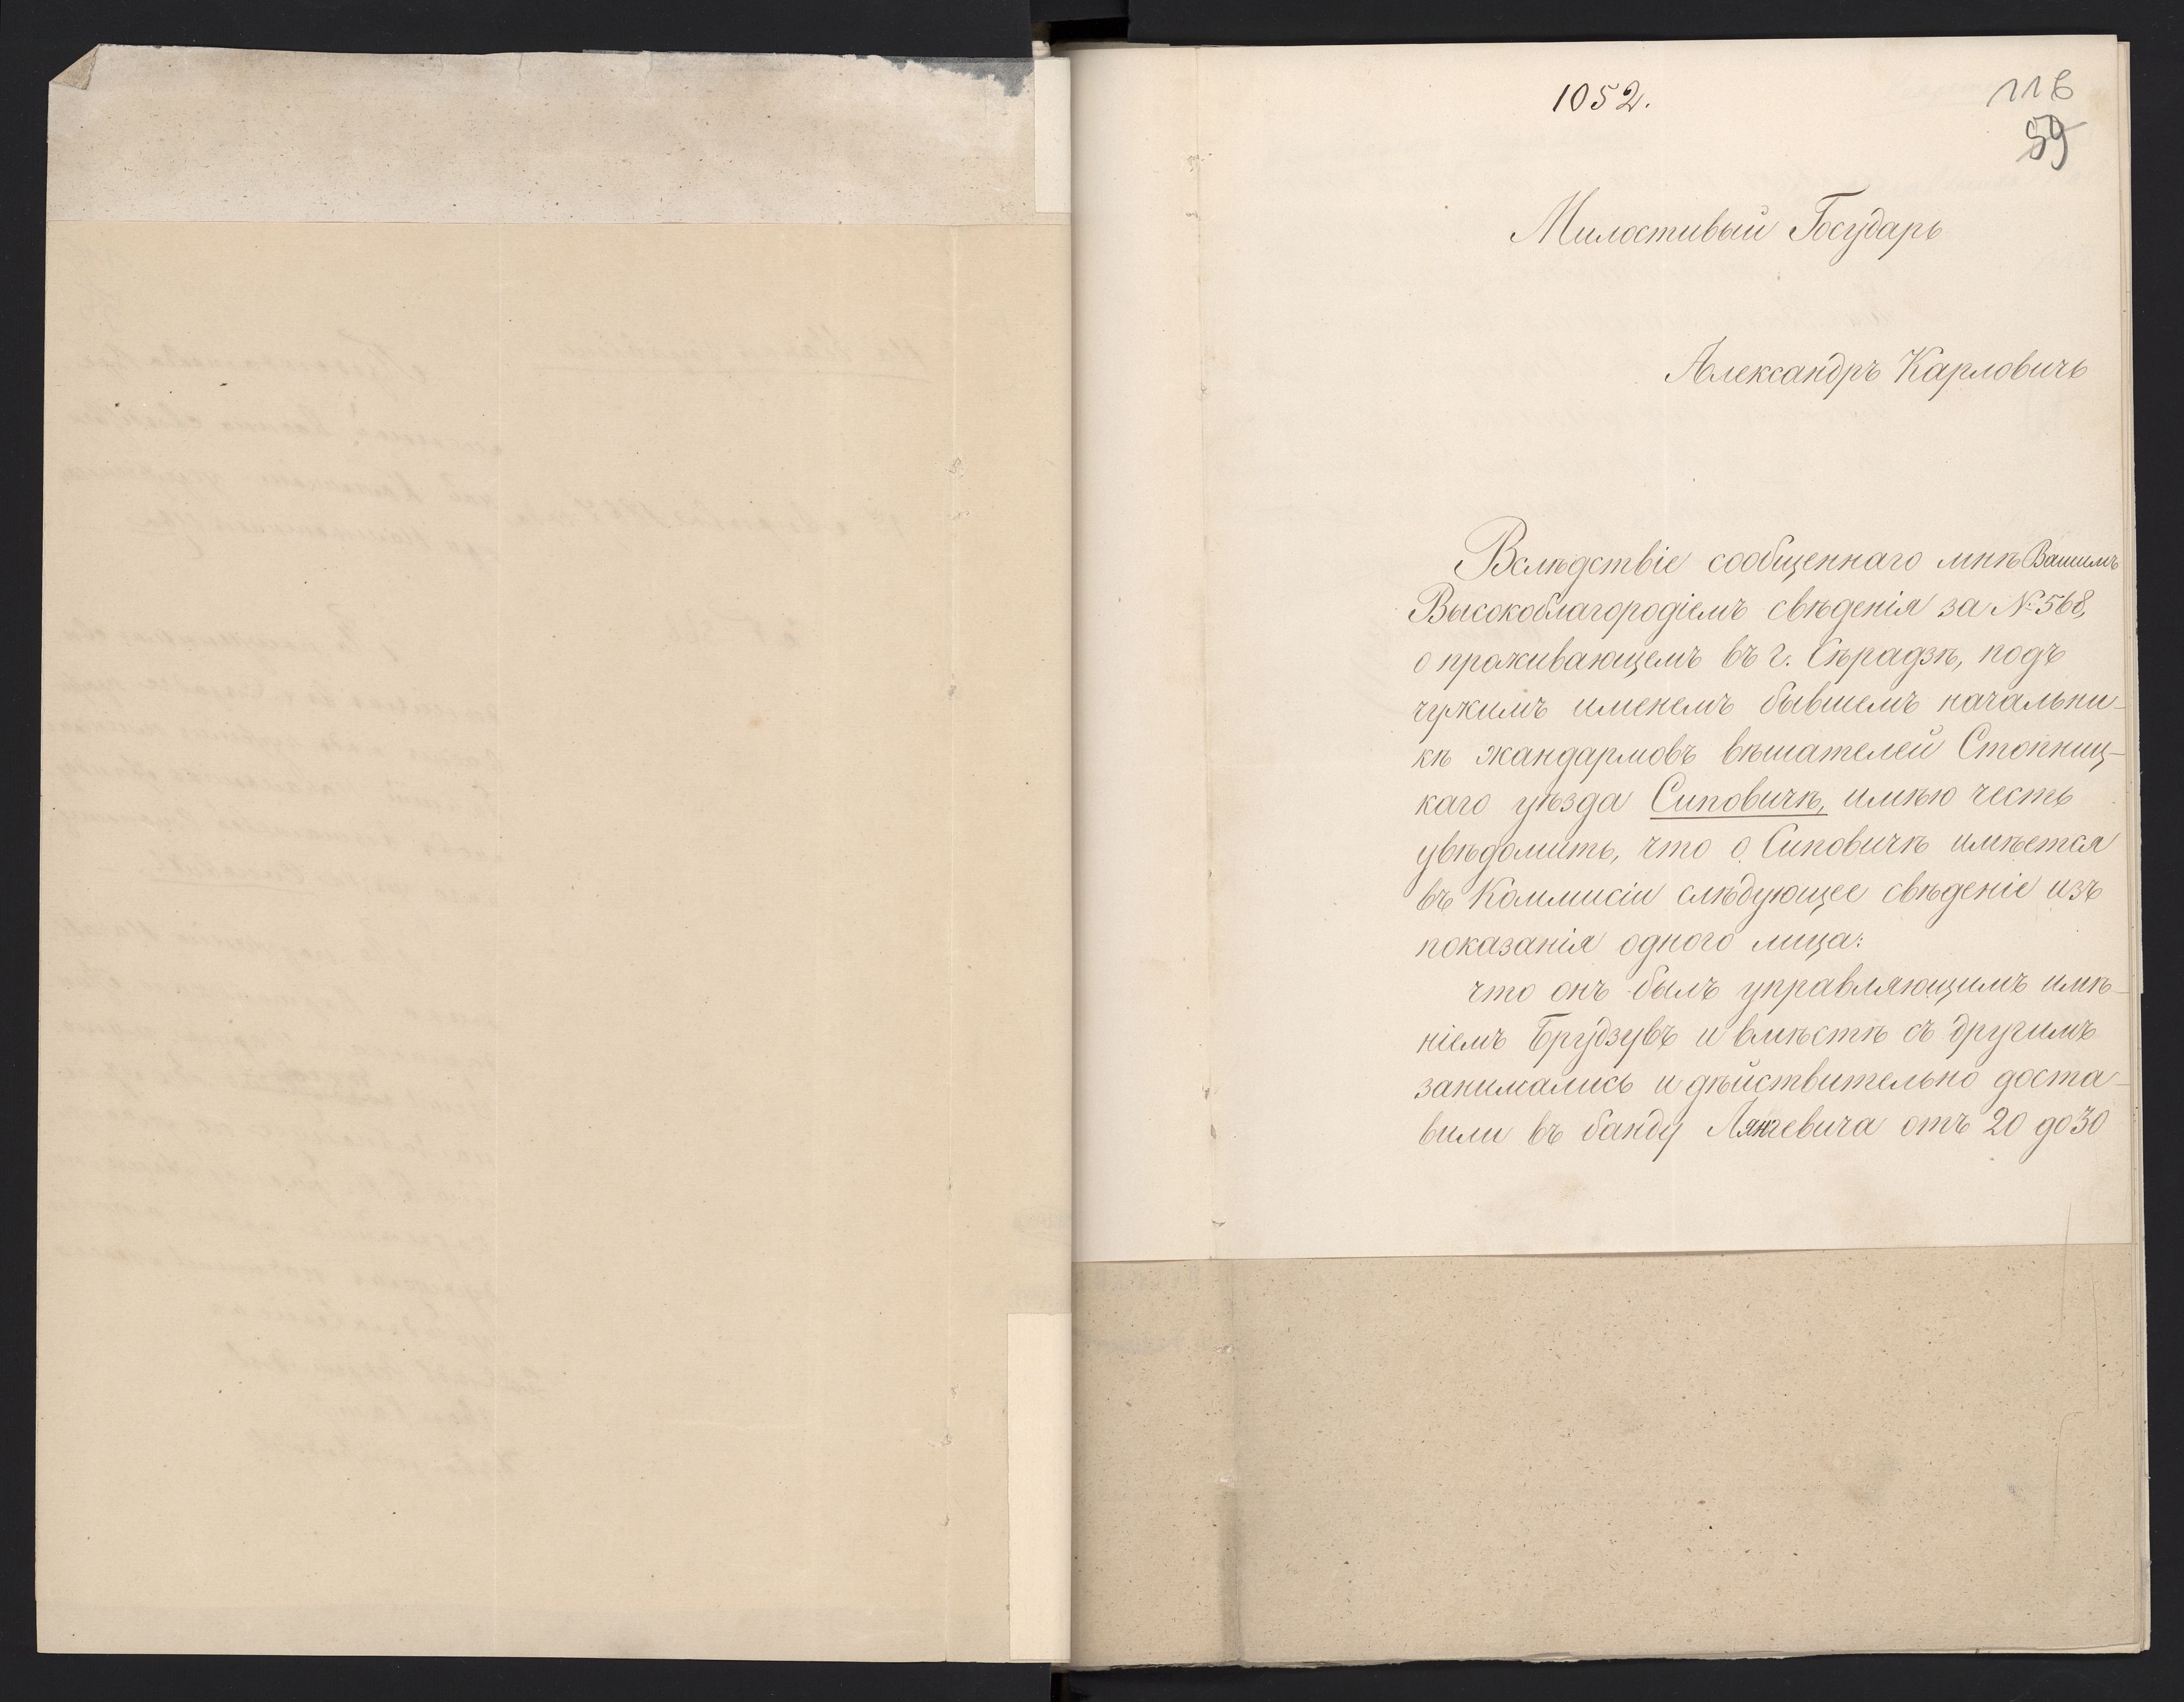 1052.
116
59
Милостивый Государь
Александръ Карловичъ
Вслѣдствіе сообщеннаго мнѣ Вашимъ
Высокоблагородіемъ свѣденія за №568,
о проживающемъ въ г. Сѣрадзѣ, подъ
чужимъ именемъ бывшемъ начальни-
кѣ жандармовъ вѣшателей Стопниц-
каго уѣзда Сиповичѣ, имѣю честь
увѣдомить, что о Сиповичѣ имѣется
въ Коммисіи слѣдующее свѣденіе изъ
показанія одного лица:
что онъ былъ управляющимъ имѣ-
ніемъ Брудзувъ и вмѣстѣ съ другимъ
занимались и дѣйствительно доста-
вили въ банду Лянгевича отъ 20 до 30